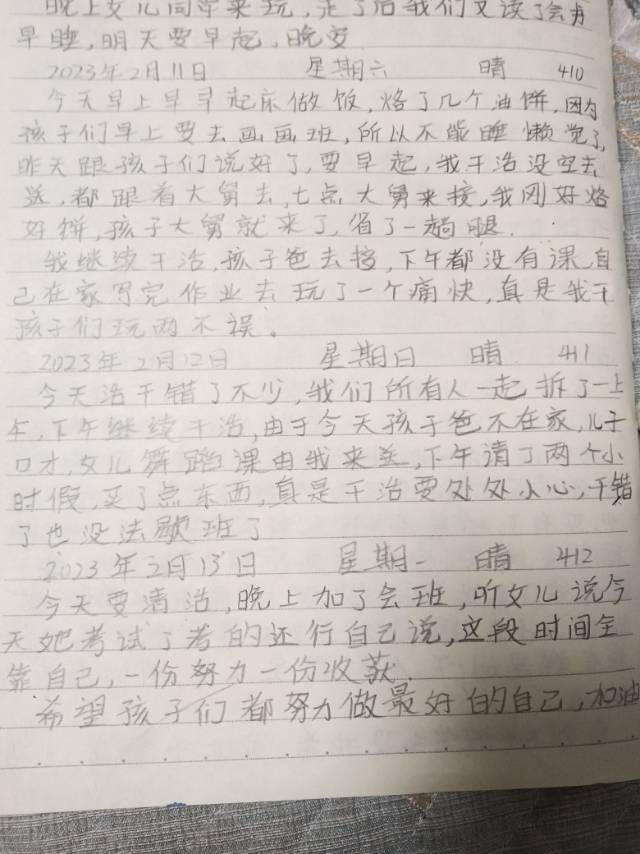 晚上女儿同学来玩,走了后我们又读了会书
早睡,明天要早起,晚安
2023年2月11日 星期六 晴 410
今天早上早早起床做饭,烙了几个油饼,因为
孩子们早上要去画画班,所以不能睡懒觉了,
昨天跟孩子们说好了,要早起,我干活没空去
送,都跟着大舅去,七点大舅来接,我刚好烙
好饼,孩子大舅就来了,省了一趟腿.
我继续干活,孩子爸去接,下午都没有课,自
己在家写完作业去玩了一个痛快,真是我干
孩子们玩两不误。
2023年2月12日 星期日 晴 411
今天活干错了不少,我们所有人一起拆了一上
午,下午继续干活,由于今天孩子爸不在家,儿子
口才,女儿舞蹈课由我来送,下午请了两个小
时假,买了点东西,真是干活要处处小心,干错
了也没法歇班了
2023年2月13日 星期一 晴 412
今天要清活,晚上加了会班,听女儿说今
天她考试了考的还行自己说,这段时间全
靠自己,一份努力一份收获.
希望孩子们都努力做最好的自己,加油